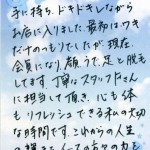 手に持ち、ドキドキしながら
お店に入りました。最初はワキ
だけのつもりでしたが、現在、
会員になり顔うで、足と脱毛
してます。丁寧なスタッフさん
に担当して頂き、心も体
もリフレッシュできる私の大切
な時間です。これからの人生